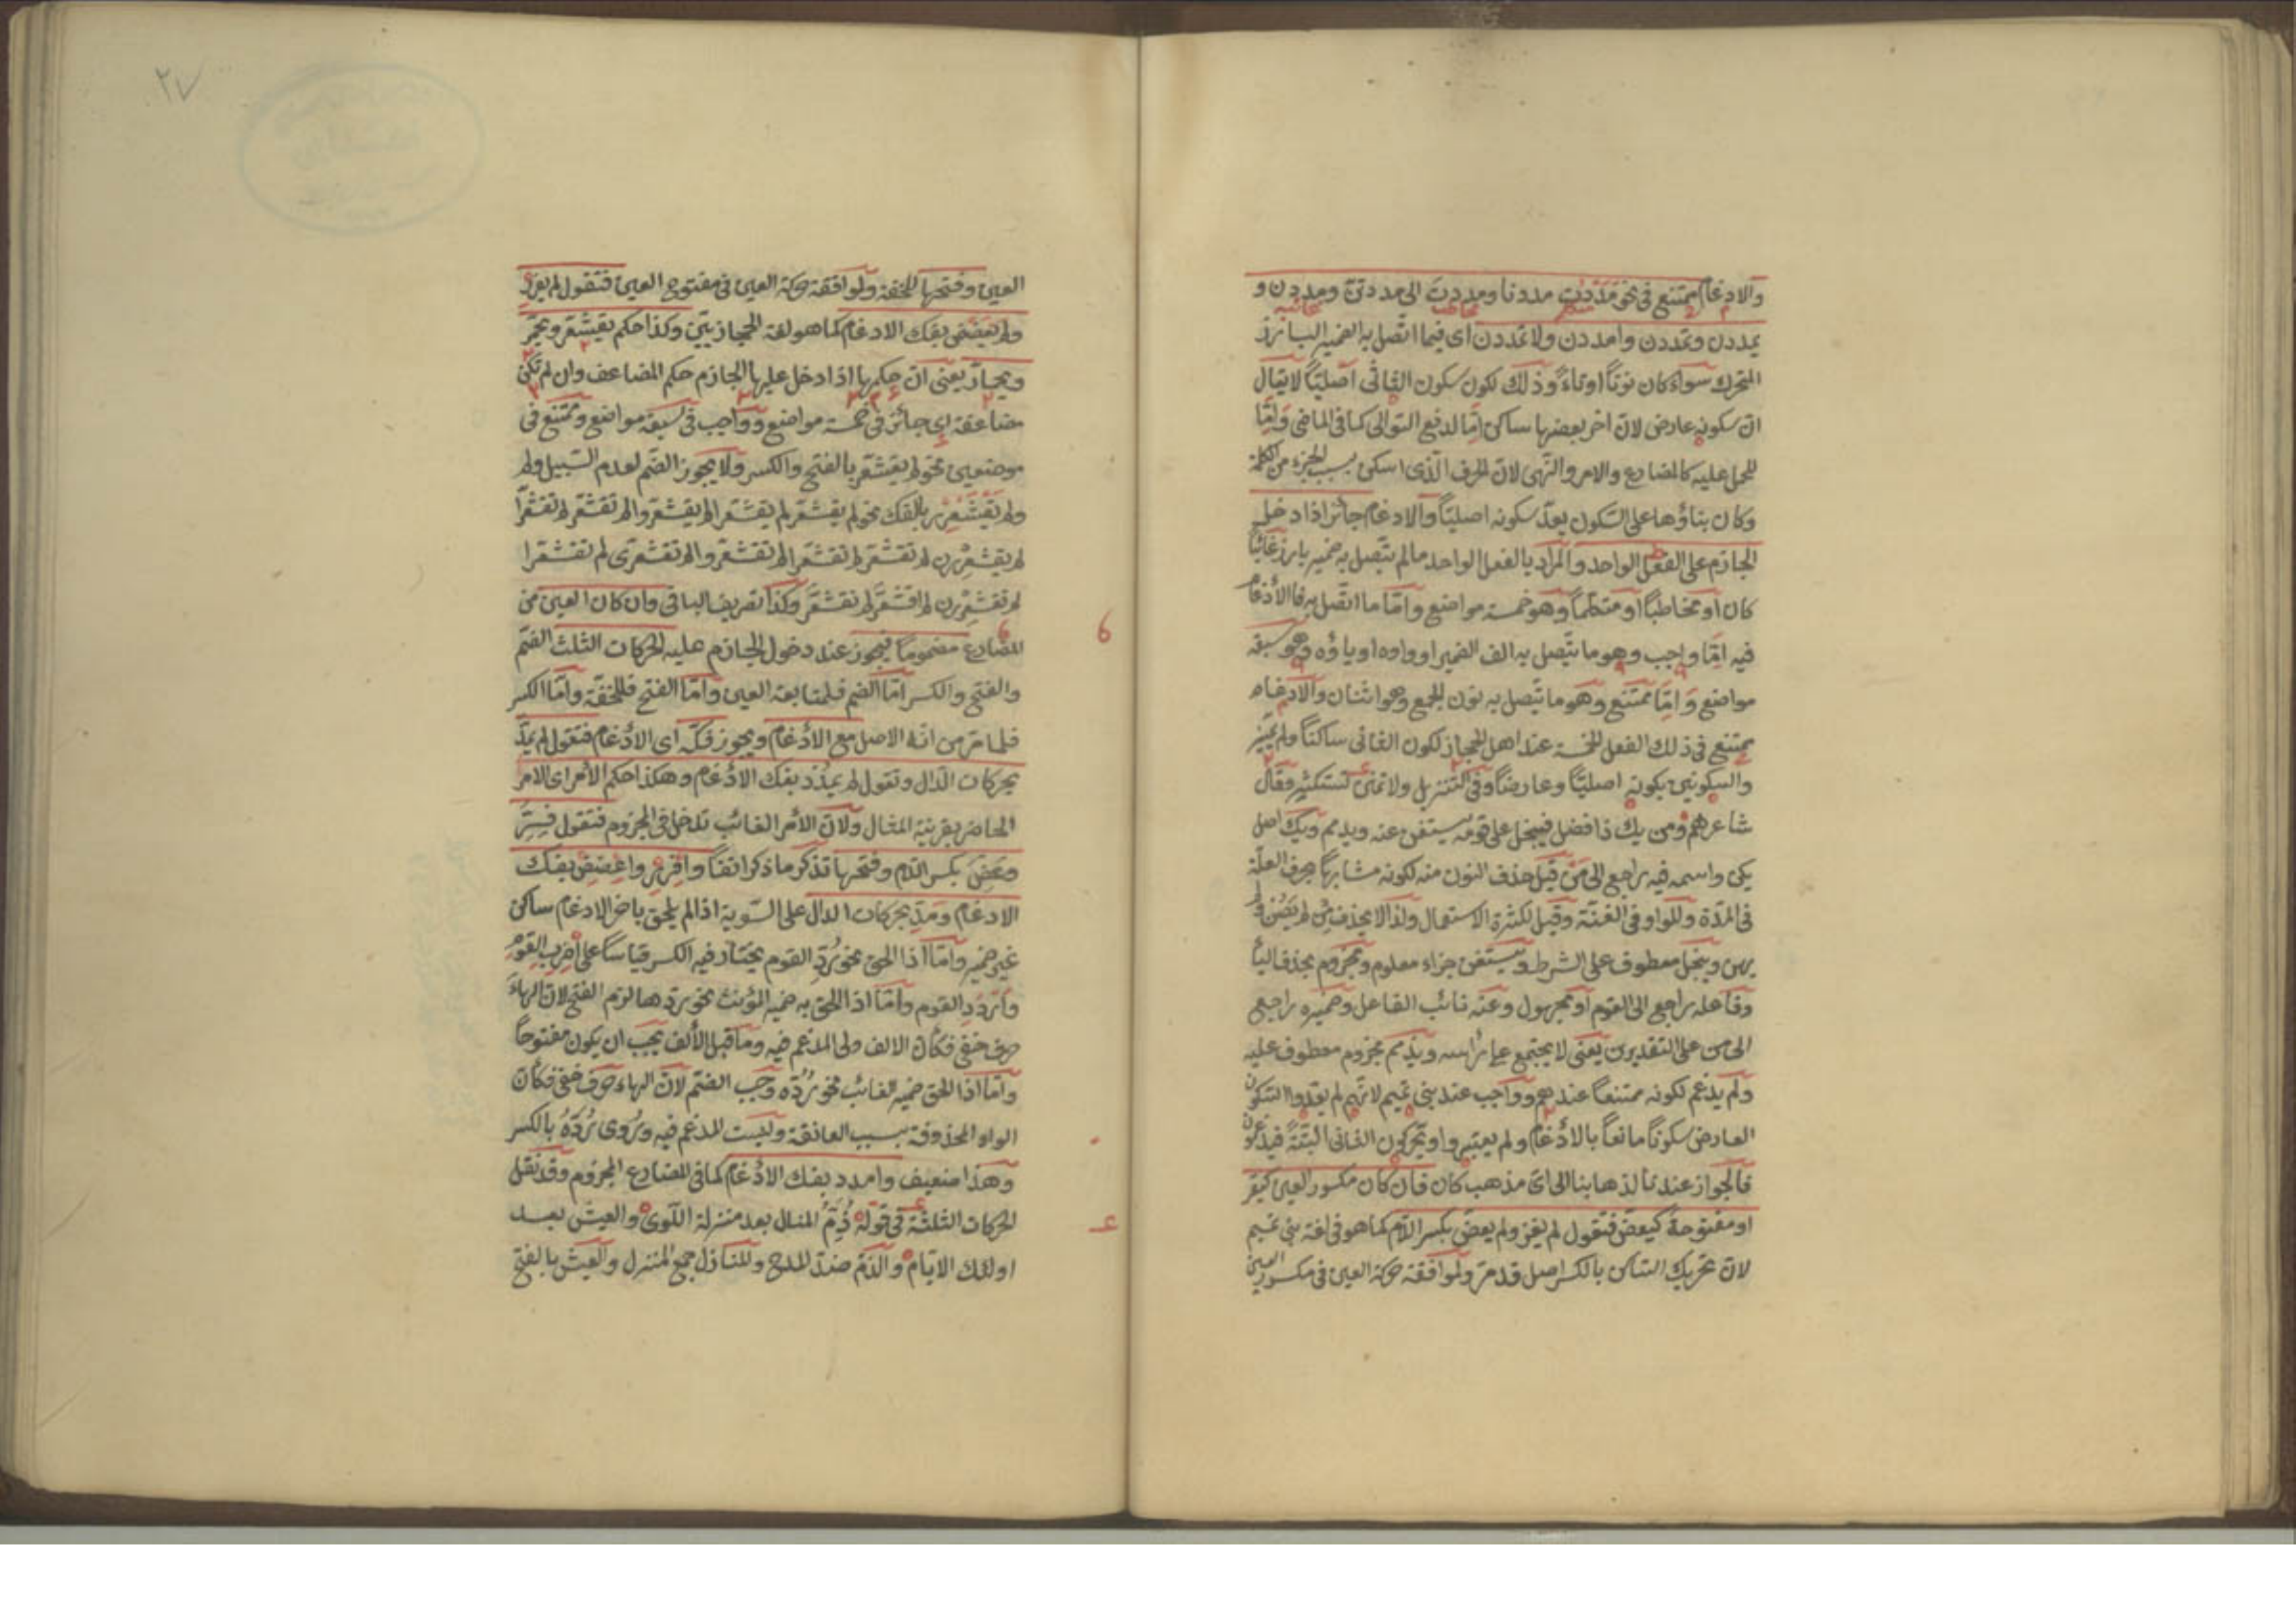 والادغام ممتنع في نحو مددت مددنا ومددت الى مددتنّ ومددن و
يمددن وتمددن وامددن ولا تمددن اى فيما اتّصل به الضمير البارز
المتحرك سواء كان نونًا او تاءً وذلك لكون سكون الثانى اصليًّا لا يقال
انّ سكونه عارض لانّ اخر بعضها ساكن امّا لدفع التوالى كما فى الماضى وامّا
للحمل عليه كالمضارع والامر والنّهى لانّ الحرف الّذى اسكن بسبب الجزء من الكلمة
وكان بناؤها على السّكون يعدّ سكونه اصليّاً والادغام جائز اذا دخل
الجازم على الفعل الواحد والمراد بالفعل الواحد ما لم يتّصل به ضمير بارز غائبًا
كان او مخاطبًا او متكلّماً وهو خمسة مواضع وامّا ما اتّصل به فالأدغام
فيه امّا واجب وهو ما يتّصل به الف الضمير او واوه او ياؤه وهو سبعة
مواضع وامّا ممتنع وهو ما يتّصل به نون الجمع وهو اثنان والادغام
يمتنع فى ذلك الفعل الخمسة عند اهل الحجاز لكون الثانى ساكنًا ولم يميّز
والسكونين بكونه اصليّاً وعارضاً وفى التّنزيل ولا تمنن تستكثر وقال
شاعرهم ومن يك ذا فضل فيبخل على قومه يستغن عنه ويذمم ويك اصل
يكن واسمه فيه راجع الى من قيل حذف النون منه لكونه مشابهًا بحرف العلّة
فى المدّة وللواو فى الغنّة وقيل لكثرة الاستعمال ولذا لا يحذف من لم يصن و
يهن ويبخل معطوف على الشرط ويستغن جزاء معلوم ومجزوم بحذف اليا
وفاعله راجع الى القوم او مجهول وعنه نائب الفاعل وضميره راجع
الى من على التقديرين يعنى لا يجتمع على رأسه ويذمم مجزوم معطوف عليه
ولم يدغم لكونه ممتنعاً عندهم وواجب عند بنى تميم لانّهم لم يعدّوا السّكون
العارض سكونًا مانعاً بالأدغام ولم يعتبروا وتحركون الثانى البتّة فيدغمون
فالجواز عندنا لذهابنا الى اىّ مذهب كان فان كان مكسور العين كيفر
او مفتوحة كيعضّ فتقول لم يفرّ ولم يعضّ بكسر اللّام كما هو فى لغة بنى تميم
لانّ تحريك السّاكن بالكسر اصل قد مرّ ولموافقة حركة العين فى مكسور العين
العين وفتحها للخفة ولموافقة حركة العين فى مفتوح العين فتقول لم يفرر
ولم يعضض بفك الادغام كما هو لغة الحجازيّين وكذا حكم يقشعرّ ويحمرّ
ويحمارّ يعنى انّ حكمها اذا دخل عليها الجازم حكم المضاعف وان لم تكن
مضاعفة اى جائز فى خمسة مواضع وواجب فى سبعة مواضع وممتنع فى
موضعين نحو لم يقشعرّ بالفتح والكسر ولا يجوز الضّم لعدم السّبيل ولم
ولم يقشعرر بالفك نحو لم يقشعرّ لم يقشعرّا لم يقشعرّوا لم تقشعرّ لم تقشعرّا
لم يقشعررن لم تقشعرّ لم تقشعرّا لم تقشعرّوا لم تقشعرّى لم تقشعرّا
لم تقشعررن لم اقشعرّ لم نقشعرّ وكذا تصريف الباقى وان كان العين من
المضارع مضموماً فيجوز عند دخول الجازم عليه الحركات الثلث الضّم
والفتح والكسر امّا الضم فلمتابعة العين وامّا الفتح فللخفّة وامّا الكسر
فلما مرّ من انّه الاصل مع الأدغام ويجوز فكّه اى الأدغام فتقول لم يمدّ
بحركات الدّال وتقول لم يمدد بفك الادغام وهكذا حكم الأمر اى الامر
الحاضر بقرينة المثال ولانّ الأمر الغائب تدخل فى المجزوم فتقول فرّ
وعضّ بكسر اللّام وفتحها تذكر ما ذكر انفاً وافرر واعضض بفك
الادغام ومدّ بحركات الدال على السّوية اذا لم يلحق باخر الادغام ساكن
غير ضمير وامّا اذا الحق نحو رُدّ القوم يختار فيه الكسر قياساً على اضرب القوم
واردد القوم وامّا اذا الحق به ضمير المؤنث نحو ردّها لزم الفتح لانّ الهاء
حرف خفى فكأن الالف ولى المدغم فيه وما قبل الألف يجب ان يكون مفتوحاً
وامّا اذا الحق ضمير الغائب نحو رُدّه وجب الضّم لانّ الهاء حرف خفى فكأنّ
الواو المحذوفة بسبب العانقة وليست المدغم فيه ورُوى رُدّهِ بالكسر
وهذا ضعيف وامدد بفك الأدغام كما فى المضارع المجزوم وقد نقل
الحركات الثلثة فى قوله ذُمّ المنازل بعد منزلة اللّوى والعيش بعد
اولئك الايّام والذّم ضدّ المدح والمنازل جمع المنزل والعيش بالفتح
٢٧